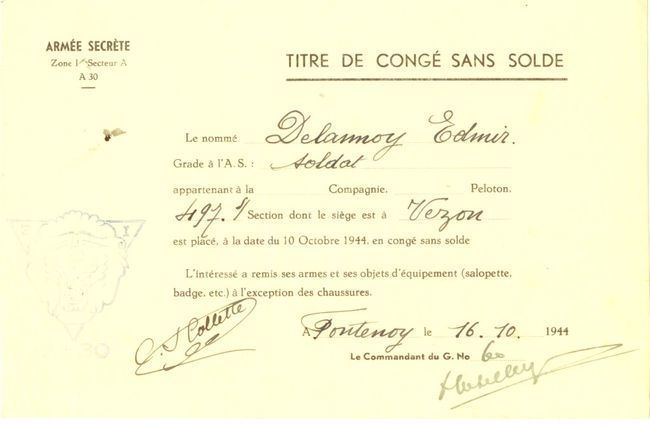 ARMÉE SECRÈTE
Zone I Secteur A
A 30
TITRE DE CONGÉ SANS SOLDE
Le nommé Delannoy Edmir.
Grade à l'A.S.: soldat
appartenant à la Compagnie, Peloton.
497. Section dont le siège est à Vezon
est placé, à la date du 10 Octobre 1944, en congé sans solde
L'intéressé a remis ses armes et ses objets d'équipement (salopette,
badge, etc.) à l'exception des chaussures.
A Fontenoy le 16.10. 1944
Le Commandant du G. No 60